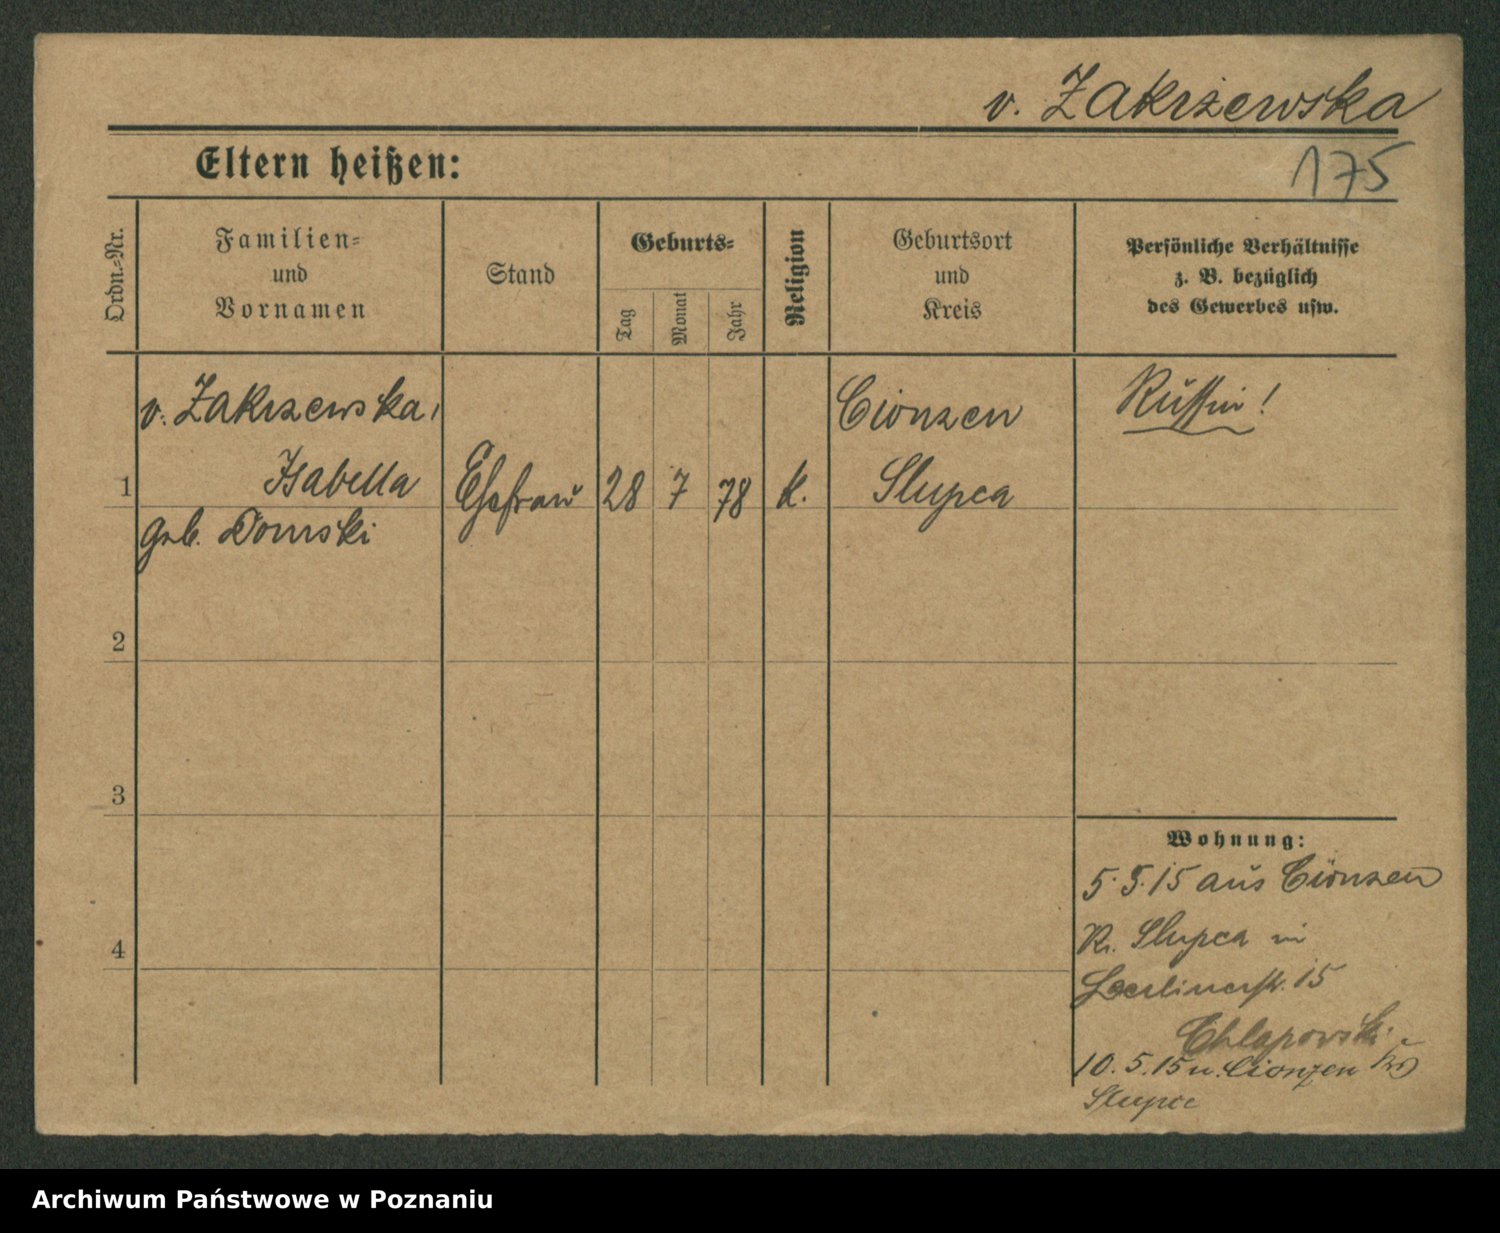 v. Zakrzewska
175
Eltern heißen:
Ordn.-Nr.
Familien-
und
Vornamen
Stand
Geburts-
Tag
Monat
Jahr
Religion
Geburtsort
und
Kreis
Persönliche Verhältnisse
z. B. bezüglich
des Gewerbes usw.
v. Zakrzewska,
Isabella
geb. Domski
1
Ehefrau
28
7
78
k.
Cionzen
Slupca
Russin!
2
3
4
Wohnung:
5.5.15 aus Cionzen
Kr. Slupca in
Berlinerstr. 15
Chlapowski
10.5.15 n. Cionzen Krs
Slupce
Archiwum Państwowe w Poznaniu